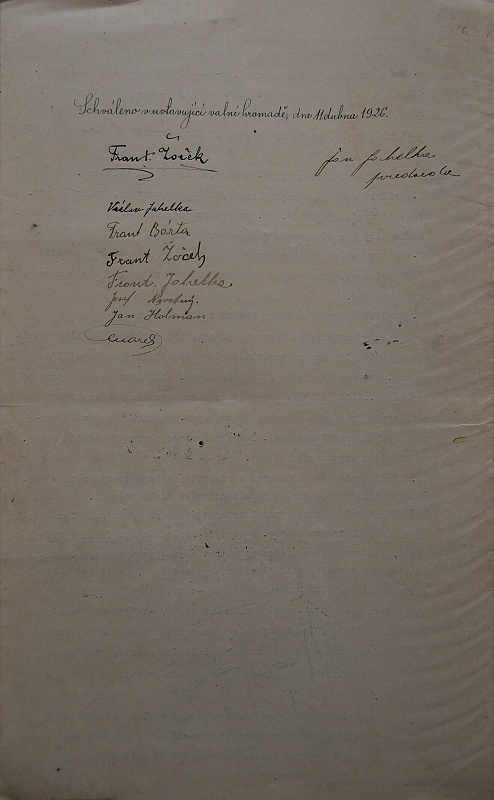 Schváleno v ustavující valné hromadě, dne 11. dubna 1926.
Frant. Žoček
Jan Jahelka
předseda
Václav Jahelka
Frant Bárta
Frant Žoček
Frant. Jahelka
Josef Novotný.
Jan Holman